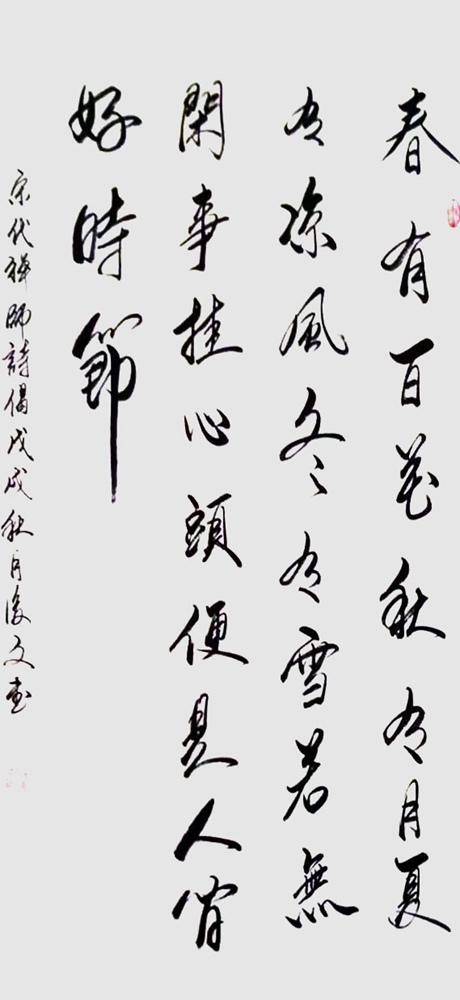 春有百花秋有月夏
有凉風冬有雪若無
閑事挂心頭便是人间
好時節
宋代禅師詩偈戊戌秋月俊文書